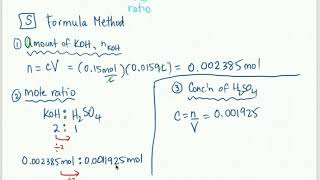 ratio
5 Formula Method
① Amount of KOH, nKOH
n = cV = (0.15 mol/L)(0.0159L) = 0.002385 mol
② mole ratio
KOH : H₂SO₄
2 : 1
÷2
0.002385mol : 0.0011925mol
÷2
③ Conc'n of H₂SO₄
C = n/V = 0.001925